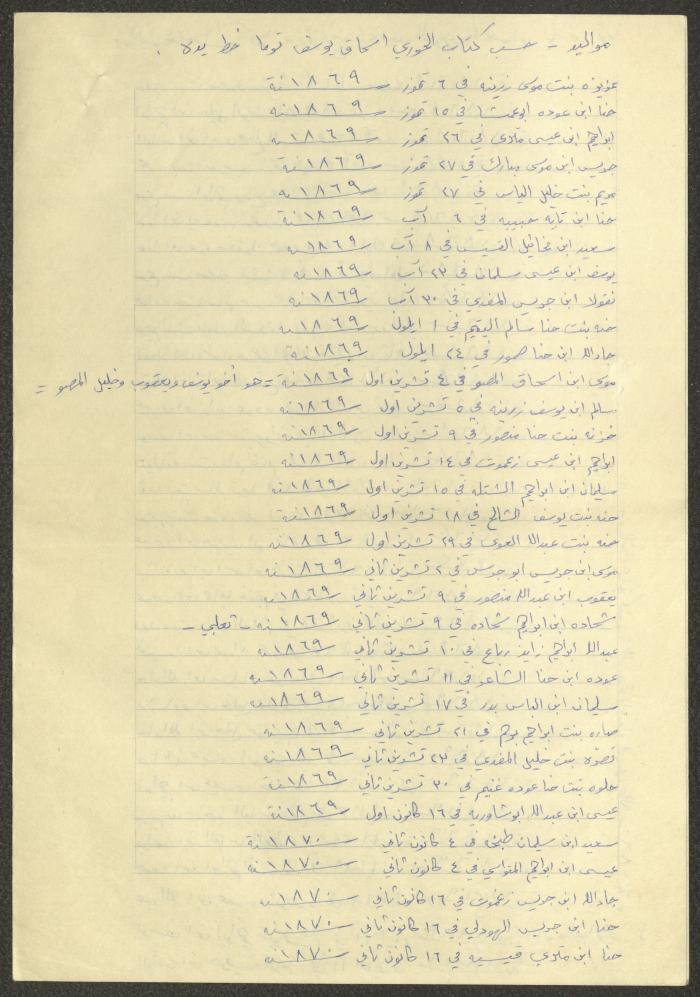 مواليد - حسب كتاب الخوري اسحاق يوسف توما خط يده .
عزيزه بنت موسى زرينه في ٦ تموز سنة ١٨٦٩
حنا ابن عوده ابو عمشا في ١٥ تموز سنة ١٨٦٩
ابراهيم ابن عيسى متري في ٢٦ تموز سنة ١٨٦٩
جريس ابن موسى مبارك في ٢٧ تموز سنة ١٨٦٩
مريم بنت خليل الياس في ٢٧ تموز سنة ١٨٦٩
حنا ابن تايه حبيبه في ٦ آب سنة ١٨٦٩
سعيد ابن مخائيل القسيس في ٨ آب سنة ١٨٦٩
يوسف ابن عيسى سلمان في ٢٣ آب سنة ١٨٦٩
نقولا ابن جريس المفدي في ٣٠ آب سنة ١٨٦٩
حنه بنت حنا سالم اليتيم في ١ ايلول سنة ١٨٦٩
جادالله ابن حنا في ٢٤ ايلول سنة ١٨٦٩
موسى ابن اسحاق المصو في ٤ تشرين اول سنة ١٨٦٩ = هو أخو يوسف ويعقوب وخليل المصو =
سالم ابن يوسف زرينه في ٥ تشرين اول سنة ١٨٦٩
خزنه بنت حنا منصور في ٩ تشرين اول سنة ١٨٦٩
ابراهيم ابن عيسى زعموت في ١٤ تشرين اول سنة ١٨٦٩
سليمان ابن ابراهيم الشتله في ١٥ تشرين اول سنة ١٨٦٩
حنه بنت يوسف الشالح في ١٨ تشرين اول سنة ١٨٦٩
حنه بنت عبدالله في ٢٩ تشرين اول سنة ١٨٦٩
موسى ابن جريس ابو جريس في ٢ تشرين ثاني سنة ١٨٦٩
يعقوب ابن عبدالله منصور في ٩ تشرين ثاني سنة ١٨٦٩
شحاده ابن ابراهيم شحاده في ٩ تشرين ثاني سنة ١٨٦٩ - تعلبي -
عبدالله ابراهيم زايد رباع في ١٠ تشرين ثاني سنة ١٨٦٩
عوده ابن حنا الشاعر في ١١ تشرين ثاني سنة ١٨٦٩
سليمان ابن الياس بدر في ١٧ تشرين ثاني سنة ١٨٦٩
ساره بنت ابراهيم برهم في ٢١ تشرين ثاني سنة ١٨٦٩
نصره بنت خليل المفدي في ٢٣ تشرين ثاني سنة ١٨٦٩
حلوه بنت حنا عوده غنيم في ٣٠ تشرين ثاني سنة ١٨٦٩
عيسى ابن عبدالله ابو شاوريه في ١٦ كانون اول سنة ١٨٦٩
سعيد ابن سليمان طبخه في ٤ كانون ثاني سنة ١٨٧٠
عيسى ابن ابراهيم المتواسي في ٤ كانون ثاني سنة ١٨٧٠
جادالله ابن جريس زعموت في ١٦ كانون ثاني سنة ١٨٧٠
حنا ابن جريس الهودلي في ١٦ كانون ثاني سنة ١٨٧٠
حنا ابن متري قيسيه في ١٦ كانون ثاني سنة ١٨٧٠